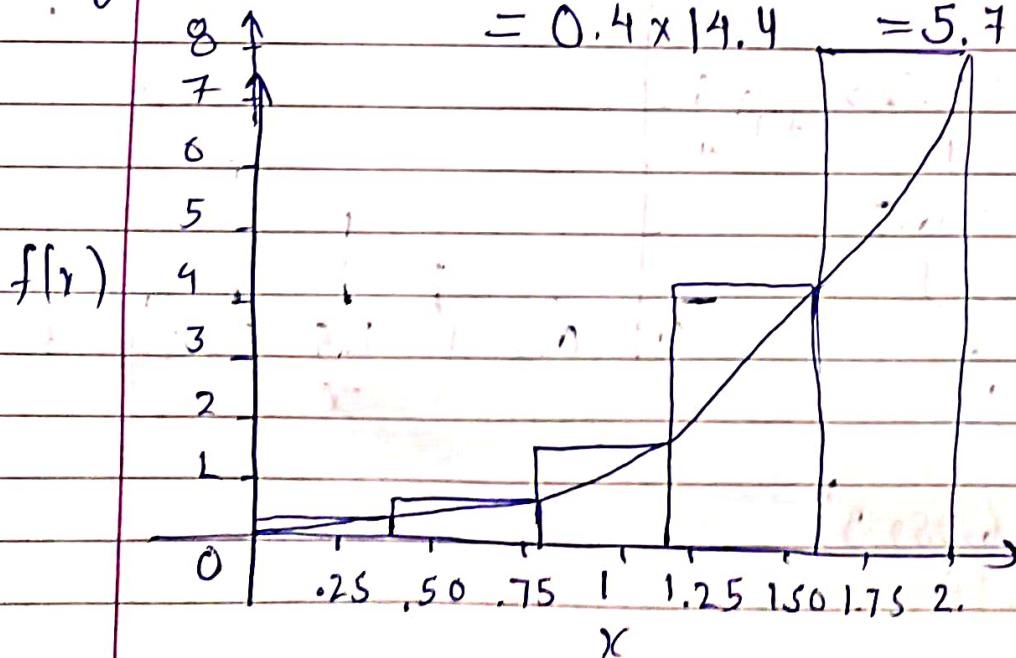 = 0.4 x 14.4 = 5.7
8
7
6
5
f(x) 4
3
2
1
0
.25 .50 .75 1 1.25 1.50 1.75 2.
x